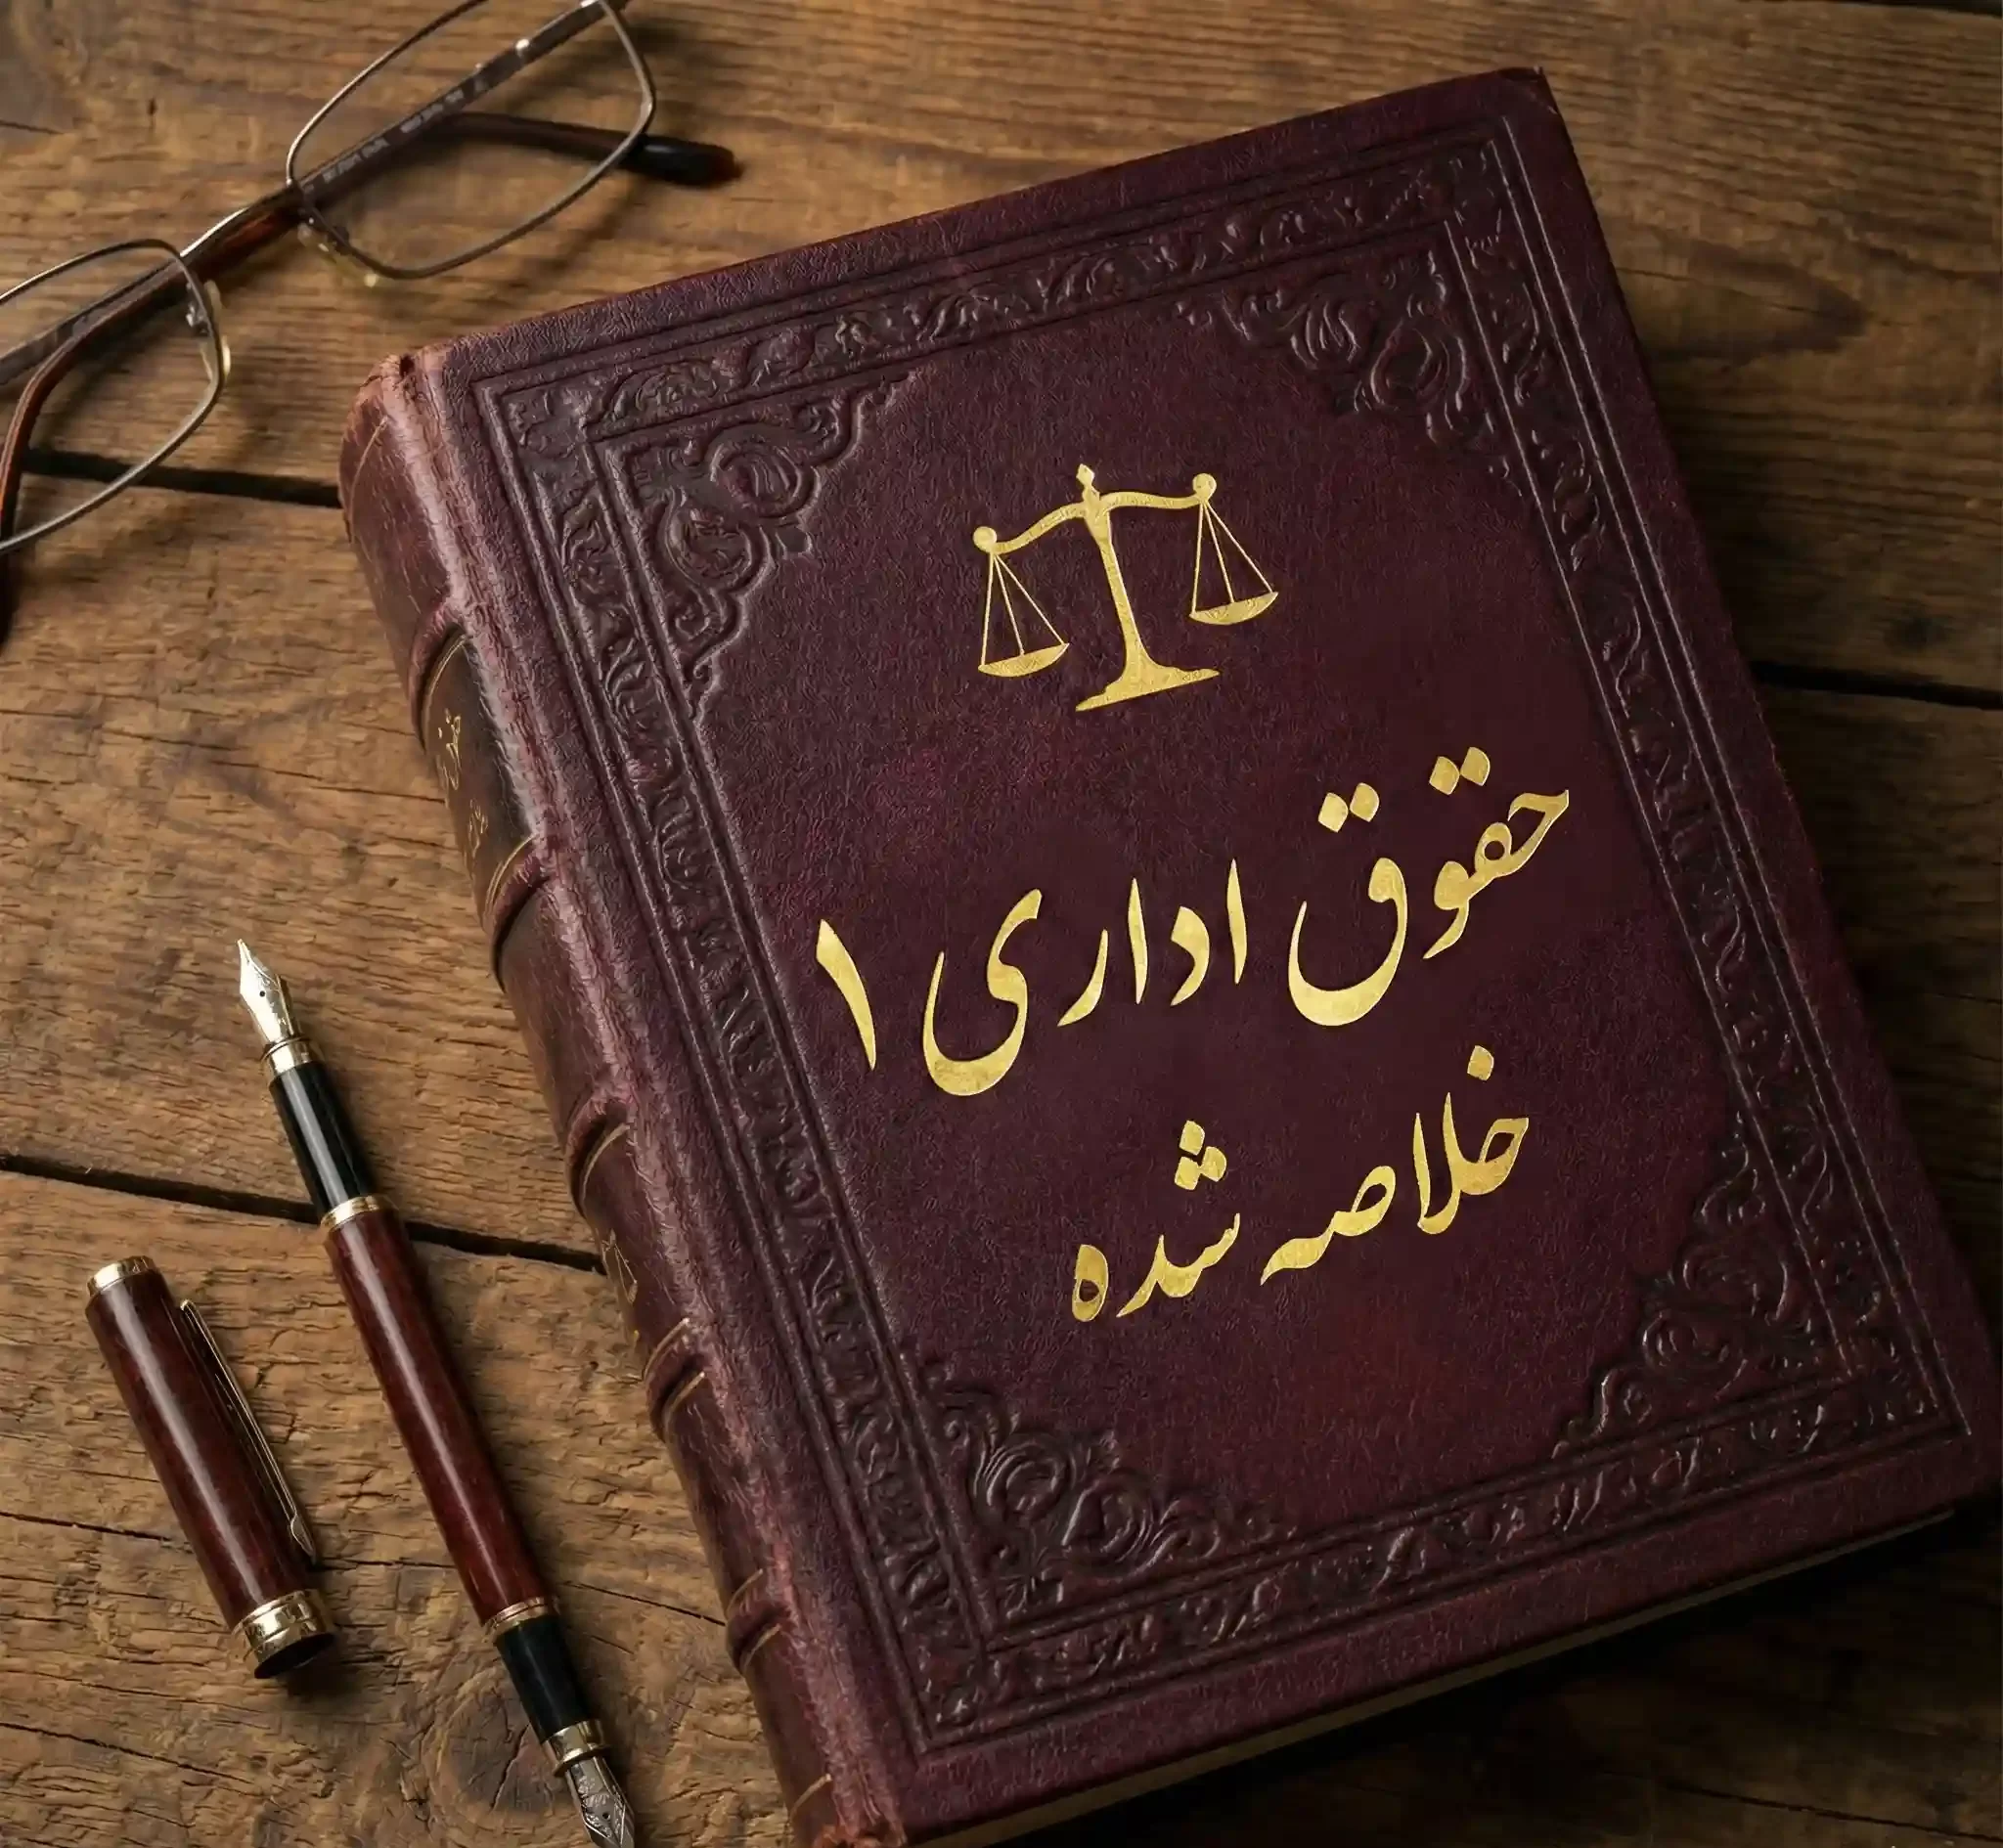 حقوق اداری ۱
خلاصه شده